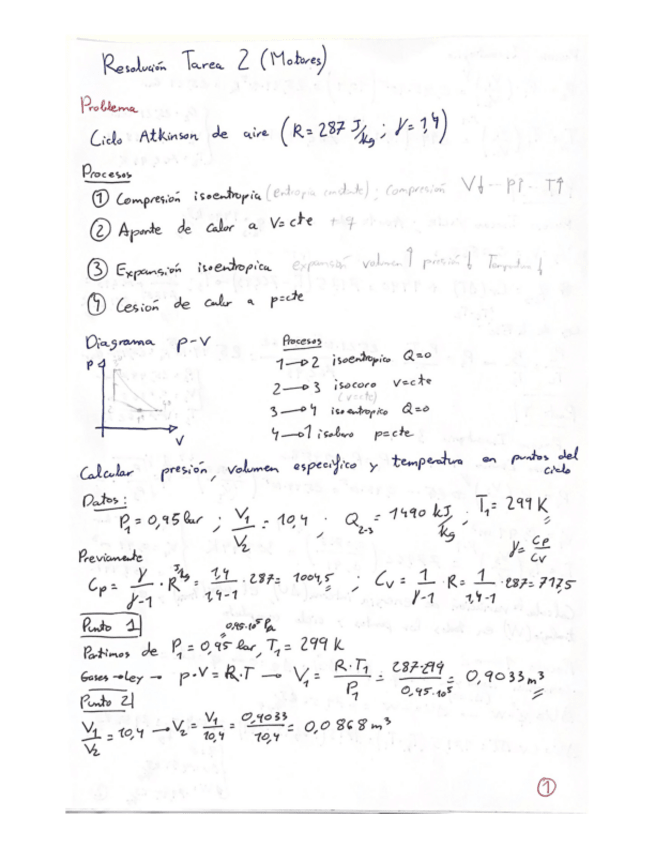 Resolución Tarea 2 (Motores)
Problema
Ciclo Atkinson de aire (R = 287 J/kg ; γ = 1,4)
Procesos
① Compresión isoentropia (entropia constante) ; compresión V↓ -- P↑ -- T↑
② Aporte de calor a V=cte
③ Expansión isoentropica expansión volumen↑ presión↓ Temperatura↓
④ Cesión de calor a p=cte
Diagrama P-V
Procesos
P
1→2 isoentropico Q=0
2→3 isocoro v=cte
(v=cte)
3→4 isoentropico Q=0
4→1 isobaro p=cte
V
Calcular presión, volumen especifico y temperatura en puntos del
ciclo
Datos:
P₁ = 0,95 bar ; V₁/V₂ = 10,4 ; Q₂₋₃ = 1490 kJ/kg ; T₁ = 299 K
γ = Cp/Cv
Previamente
Cp = γ/γ-1 · R J/kg = 1,4/1,4-1 · 287 = 1004,5 ; Cv = 1/γ-1 · R = 1/1,4-1 · 287 = 717,5
Punto 1
0,95·10⁵ Pa
Partimos de P₁ = 0,95 bar, T₁ = 299 K
Gases → Ley → p·V = R·T → V₁ = R·T₁/P₁ = 287·299/0,95·10⁵ = 0,9033 m³
Punto 2
V₁/V₂ = 10,4 → V₂ = V₁/10,4 = 0,9033/10,4 = 0,0868 m³
①